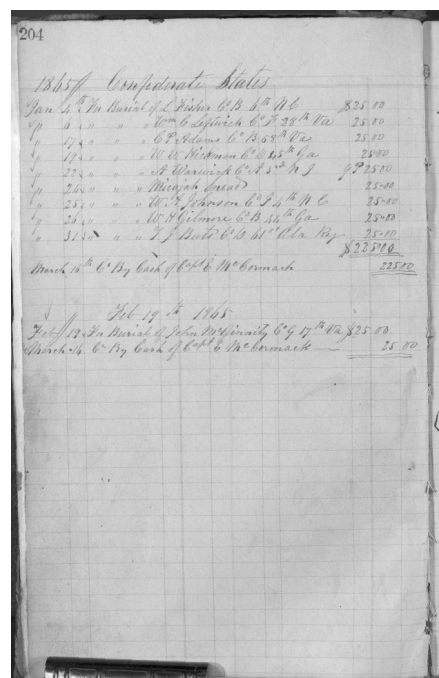 204
1865 Confederate States
Jan 4th For Burial of L Fisher Co B 6th N C $25.00
" 6 " " " Wm C Leftwich Co F 28th Va 25.00
" 17 " " " C P Adams Co B 58th Va 25.00
" 19 " " " W W Hickman Co 45th Ga 25.00
" 22 " " " A Warwick Co A N J 25.00
" 24 " " " Micajah 25.00
" 25 " " " W H Johnson Co I 4th N C 25.00
" 26 " " " W H Gilmore Co B 44th Ga 25.00
" 31 " " " T J Co 61st Ala Reg 25.00
$225.00
March 16th Cr By Cash of Capt C McCormack 225.00
Feb 19th 1865
Feb 19 For Burial of John McGinnity Co G 17th Va $25.00
March 16 Cr By Cash of Capt C McCormack 25.00